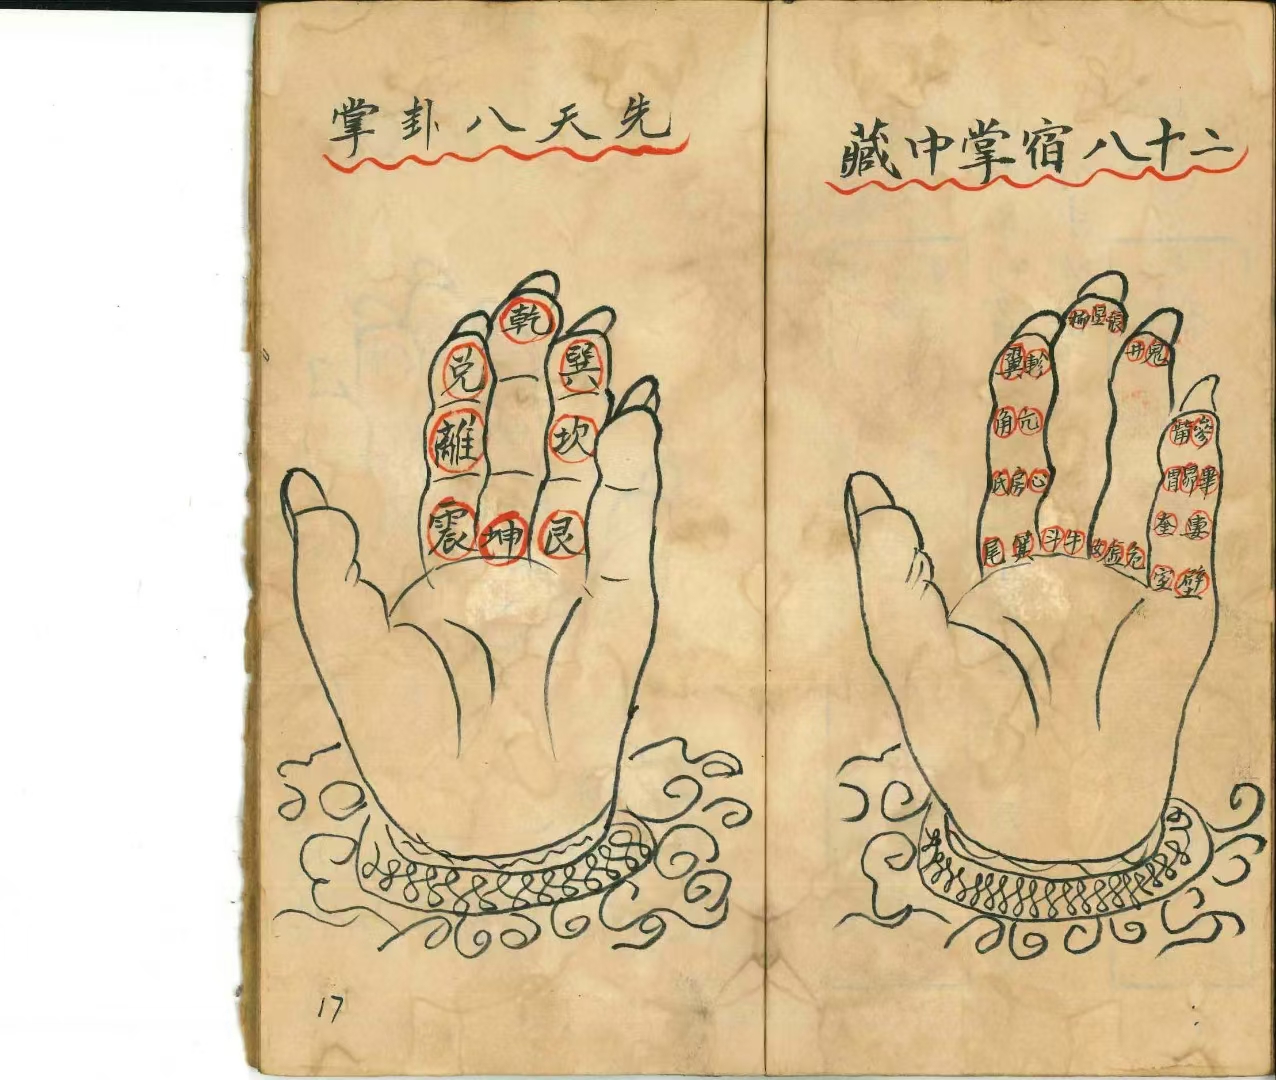 二十八宿掌中藏
柳星張
井鬼
翼軫
參
角亢
胃昴畢
氐房心
奎婁
尾箕
斗牛
女虛危
室壁
先天八卦掌
乾
兌
巽
離
坎
震
坤
艮
17